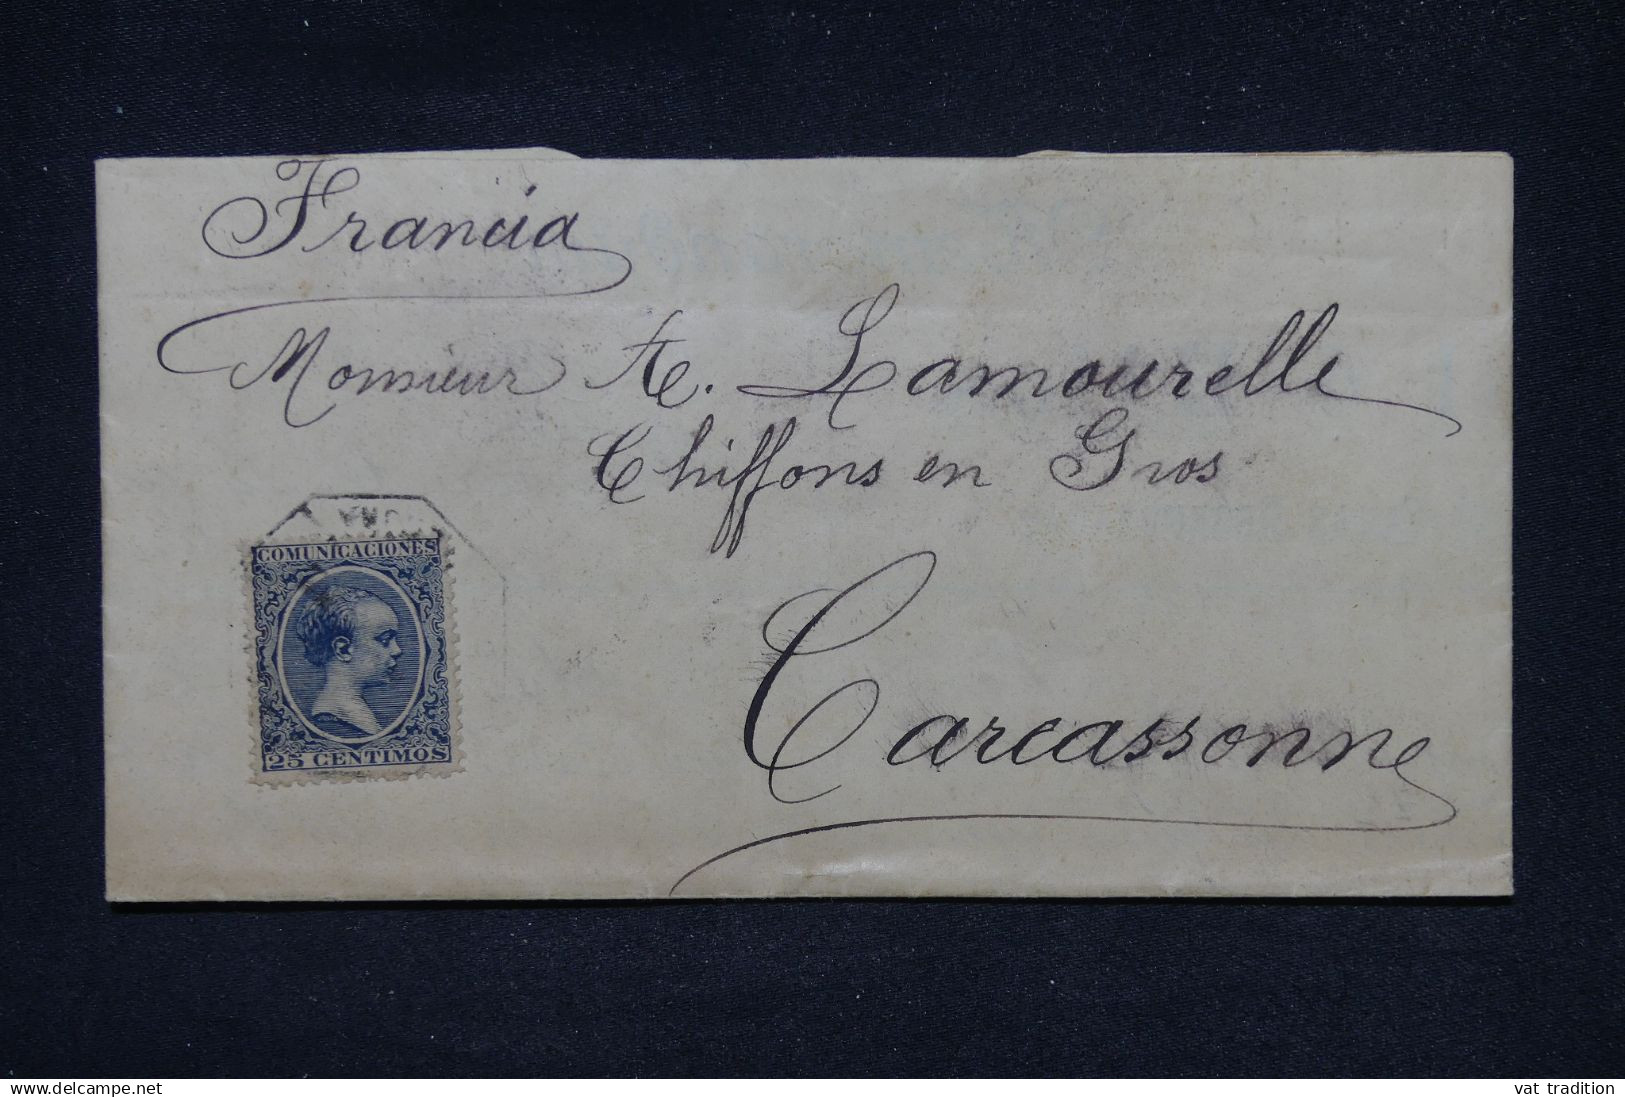 Francia
Monsieur A. Lamourelle
Chiffons en Gros
Carcassonne
COMUNICACIONES
25 CENTIMOS
www.delcampe.net
vat_tradition